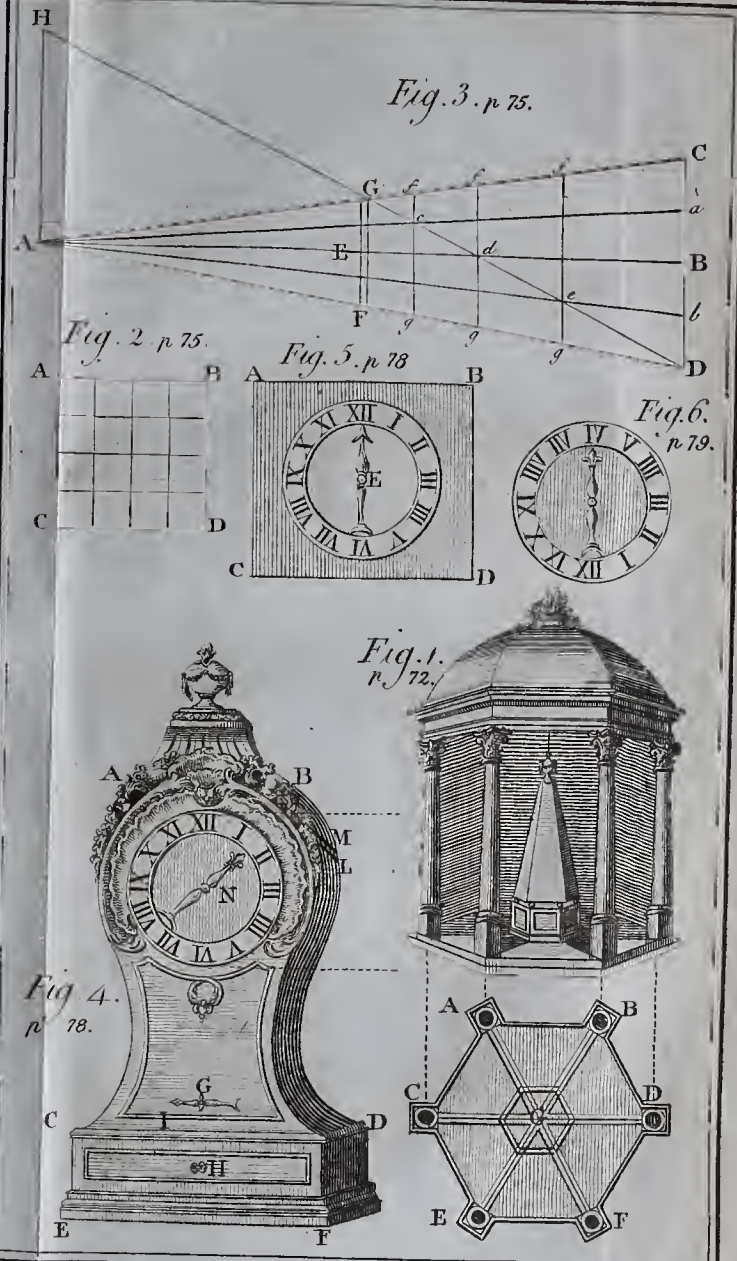 H
Fig. 3. p 75.
C
G f f f
a
A
c
E
d
B
e
b
F g g g
D
Fig. 2. p 75.
A B
C D
Fig. 5. p 78
A B
XII I II III IIII V VI VII VIII IX X XI
E
C D
Fig. 6.
p 79.
VI V IIII III II I XII IX X XI VIII VII
Fig. 1.
p 72.
A B
M
L
XII I II III IIII V VI VII VIII IX X XI
N
Fig 4.
p 78.
G
C I D
H
E F
A B
C G D
E F